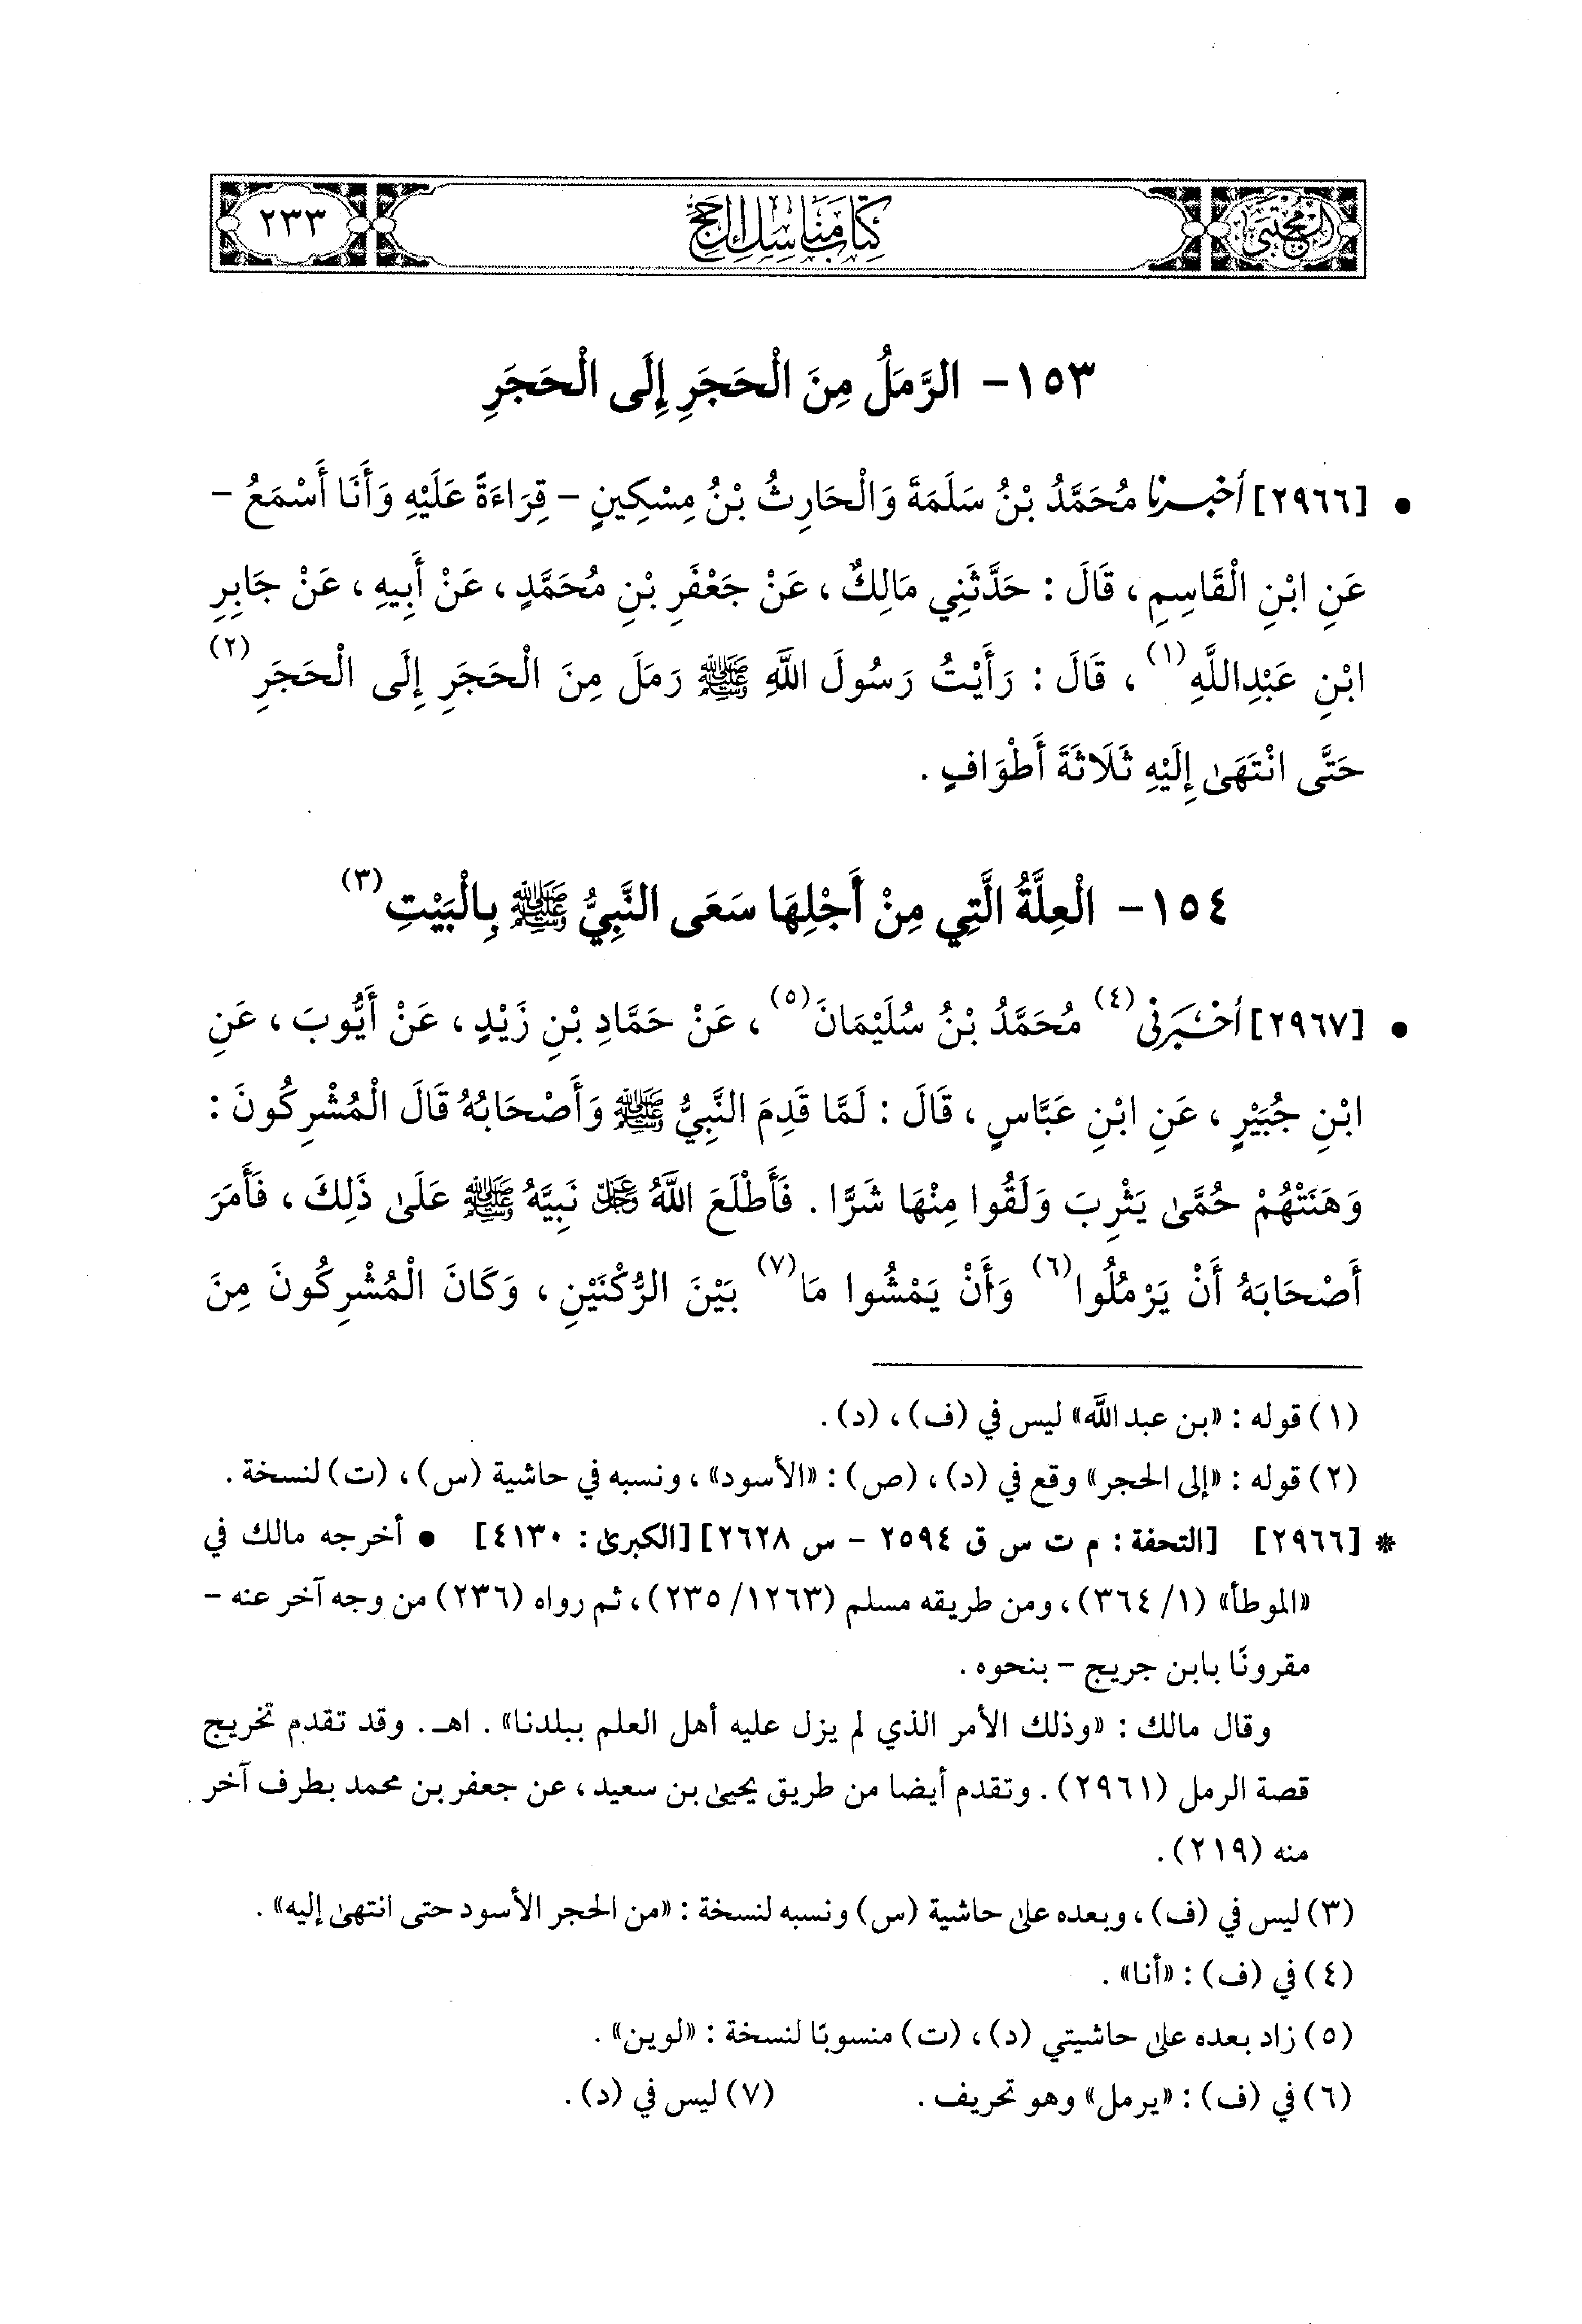 المجتبى
كتاب مناسك الحج
٢٣٣
١٥٣- الرَّمَلُ مِنَ الْحَجَرِ إِلَى الْحَجَرِ
• [٢٩٦٦] أخبرنا مُحَمَّدُ بْنُ سَلَمَةَ وَالْحَارِثُ بْنُ مِسْكِينٍ - قِرَاءَةً عَلَيْهِ وَأَنَا أَسْمَعُ -
عَنِ ابْنِ الْقَاسِمِ، قَالَ: حَدَّثَنِي مَالِكٌ، عَنْ جَعْفَرِ بْنِ مُحَمَّدٍ، عَنْ أَبِيهِ، عَنْ جَابِرِ
ابْنِ عَبْدِاللَّهِ(١)، قَالَ: رَأَيْتُ رَسُولَ اللَّهِ ﷺ رَمَلَ مِنَ الْحَجَرِ إِلَى الْحَجَرِ(٢)
حَتَّى انْتَهَىٰ إِلَيْهِ ثَلَاثَةَ أَطْوَافٍ.
١٥٤- الْعِلَّةُ الَّتِي مِنْ أَجْلِهَا سَعَى النَّبِيُّ ﷺ بِالْبَيْتِ(٣)
• [٢٩٦٧] أَخْبَرَنِي(٤) مُحَمَّدُ بْنُ سُلَيْمَانَ(٥)، عَنْ حَمَّادِ بْنِ زَيْدٍ، عَنْ أَيُّوبَ، عَنِ
ابْنِ جُبَيْرٍ، عَنِ ابْنِ عَبَّاسٍ، قَالَ: لَمَّا قَدِمَ النَّبِيُّ ﷺ وَأَصْحَابُهُ قَالَ الْمُشْرِكُونَ:
وَهَنَتْهُمْ حُمَّىٰ يَثْرِبَ وَلَقُوا مِنْهَا شَرًّا. فَأَطْلَعَ اللَّهُ عَزَّ وَجَلَّ نَبِيَّهُ ﷺ عَلَىٰ ذَلِكَ، فَأَمَرَ
أَصْحَابَهُ أَنْ يَرْمُلُوا(٦) وَأَنْ يَمْشُوا مَا(٧) بَيْنَ الرُّكْنَيْنِ، وَكَانَ الْمُشْرِكُونَ مِنَ
(١) قوله: «بن عبد اللَّه» ليس في (ف)، (د).
(٢) قوله: «إلى الحجر» وقع في (د)، (ص): «الأسود»، ونسبه في حاشية (س)، (ت) لنسخة.
* [٢٩٦٦] [التحفة: م ت س ق ٢٥٩٤ - س ٢٦٢٨] [الكبرى: ٤١٣٠] • أخرجه مالك في
«الموطأ» (١/ ٣٦٤)، ومن طريقه مسلم (١٢٦٣/ ٢٣٥)، ثم رواه (٢٣٦) من وجه آخر عنه -
مقرونًا بابن جريج - بنحوه.
وقال مالك: «وذلك الأمر الذي لم يزل عليه أهل العلم ببلدنا». اهـ. وقد تقدم تخريج
قصة الرمل (٢٩٦١). وتقدم أيضا من طريق يحيى بن سعيد، عن جعفر بن محمد بطرف آخر
منه (٢١٩).
(٣) ليس في (ف)، وبعده على حاشية (س) ونسبه لنسخة: «من الحجر الأسود حتى انتهىٰ إليه».
(٤) في (ف): «أنا».
(٥) زاد بعده على حاشيتي (د)، (ت) منسوبًا لنسخة: «لوين».
(٦) في (ف): «يرمل» وهو تحريف. (٧) ليس في (د).